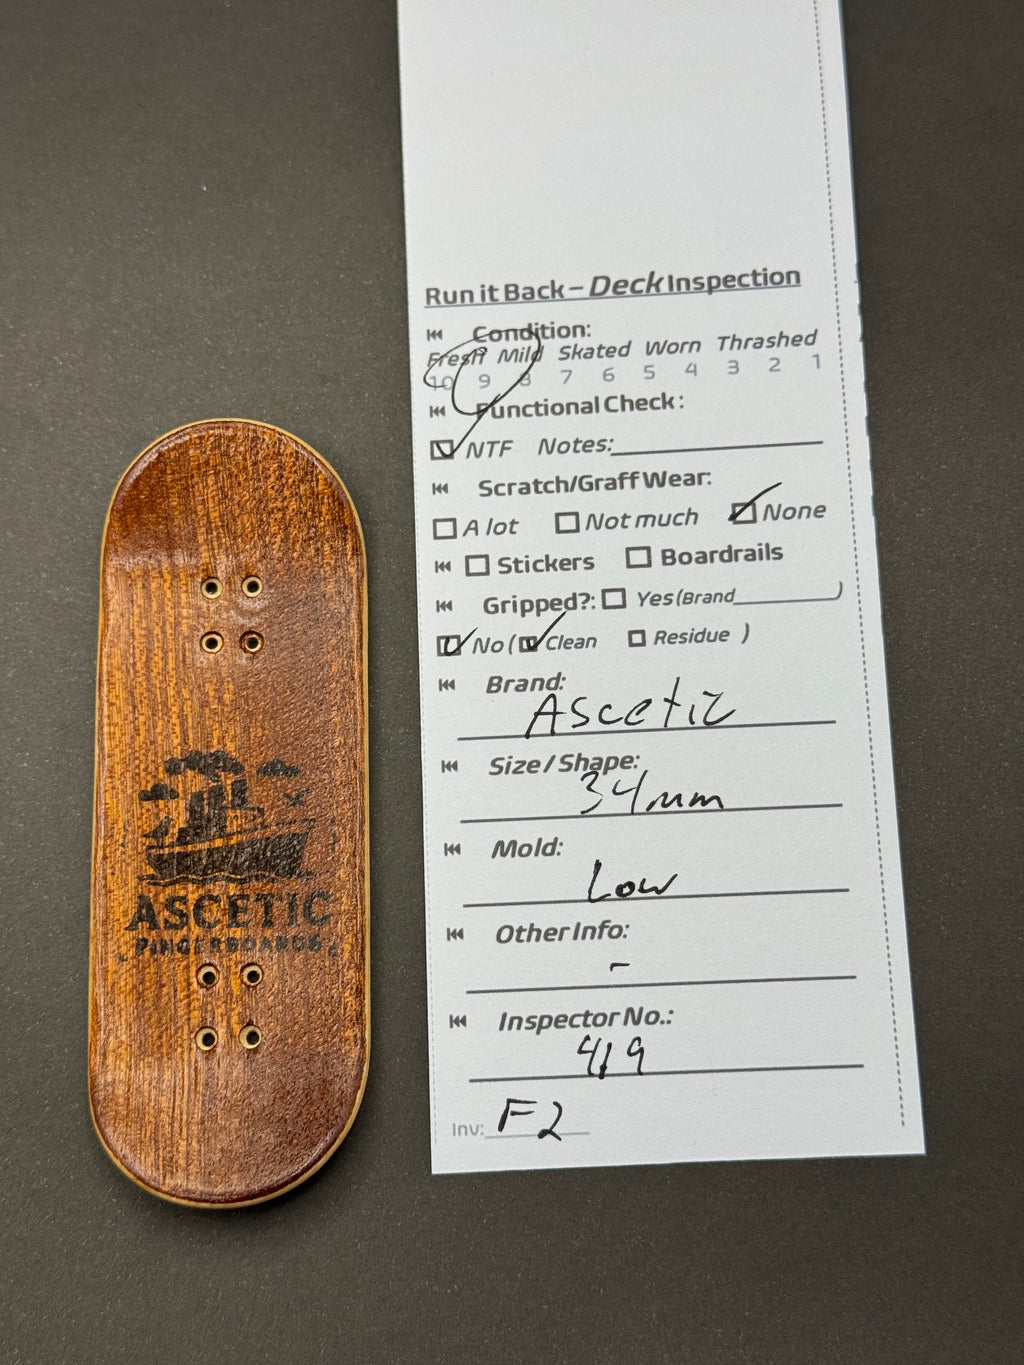 Run it Back – Deck Inspection
Condition:
Fresh Mild Skated Worn Thrashed
10 9 8 7 6 5 4 3 2 1
Functional Check:
NTF Notes:
Scratch/Graff Wear:
A lot Not much None
Stickers Boardrails
Gripped?: Yes (Brand )
No ( Clean Residue )
Brand:
Ascetic
Size / Shape:
34mm
Mold:
Low
Other Info:
-
Inspector No.:
419
Inv: F2
ASCETIC
FINGERBOARDS